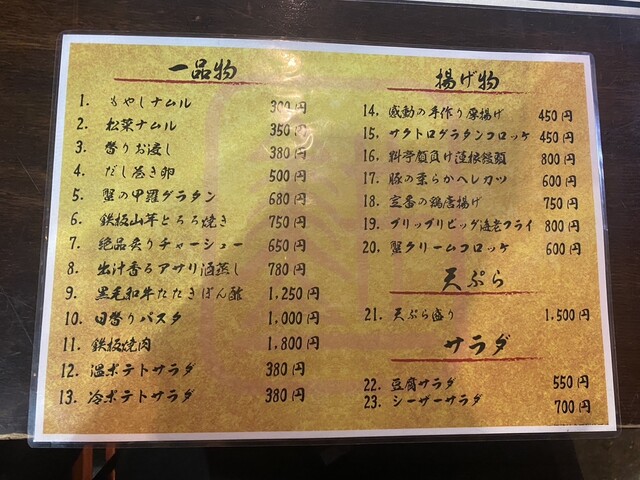 一品物
1. もやしナムル 300円
2. 松菜ナムル 350円
3. 替りお浸し 380円
4. だし巻き卵 500円
5. 蟹の甲羅グラタン 680円
6. 鉄板山芋とろろ焼き 750円
7. 絶品炙りチャーシュー 650円
8. 出汁香るアサリ酒蒸し 780円
9. 黒毛和牛たたきぽん酢 1,250円
10. 日替りパスタ 1,000円
11. 鉄板焼肉 1,800円
12. 温ポテトサラダ 380円
13. 冷ポテトサラダ 380円
揚げ物
14. 感動の手作り厚揚げ 450円
15. サクトログラタンコロッケ 450円
16. 料亭顔負け蓮根饅頭 800円
17. 豚の柔らかヘレカツ 600円
18. 定番の鶏唐揚げ 750円
19. プリップリビッグ海老フライ 800円
20. 蟹クリームコロッケ 600円
天ぷら
21. 天ぷら盛り 1,500円
サラダ
22. 豆腐サラダ 550円
23. シーザーサラダ 700円